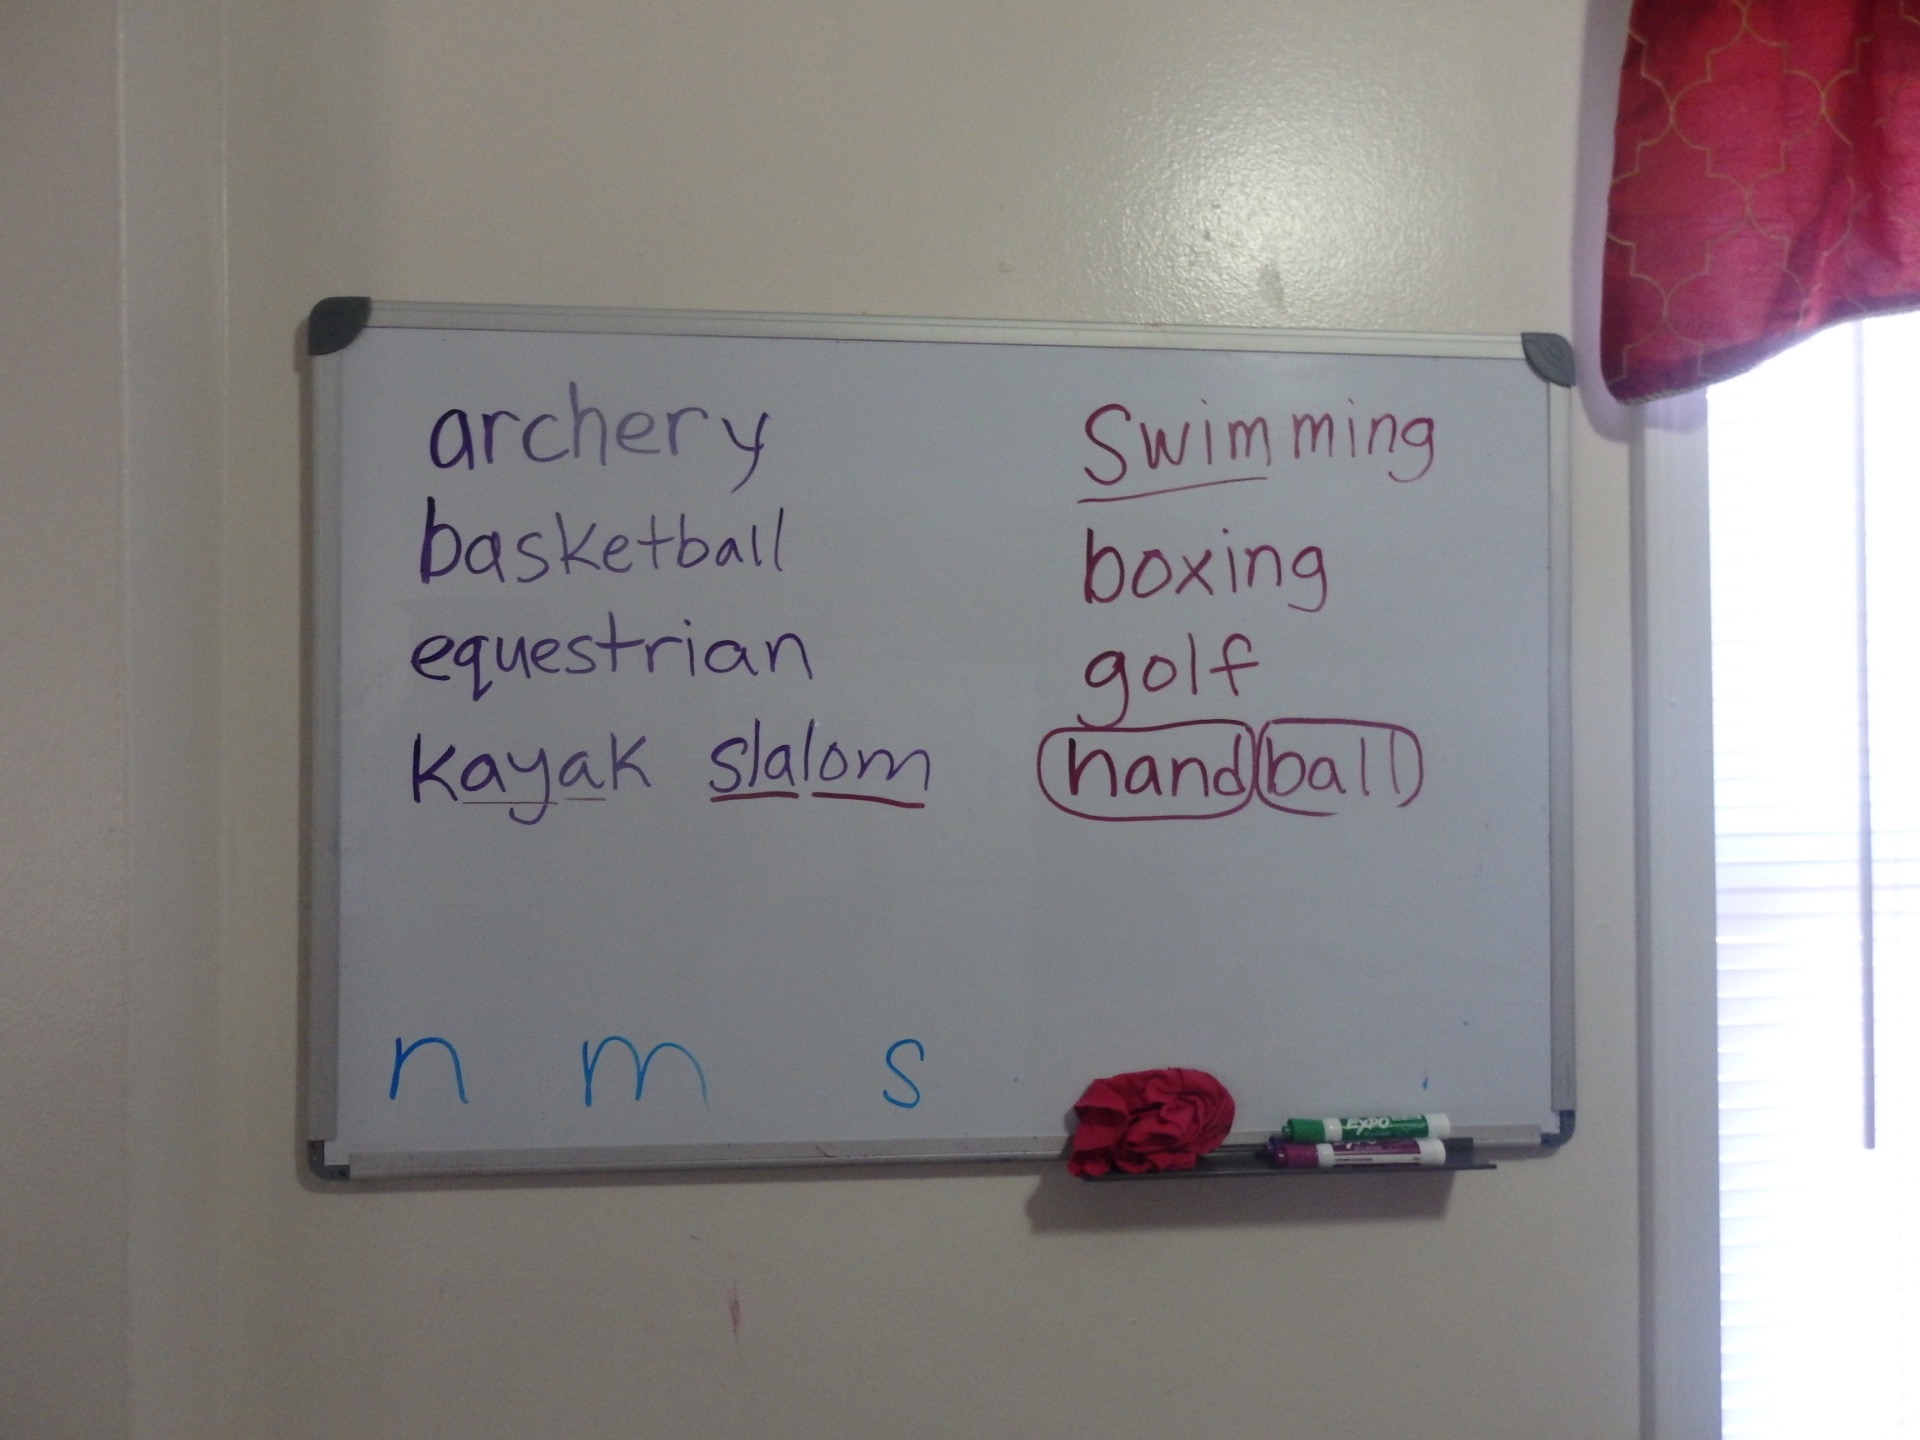 archery
basketball
equestrian
kayak slalom
Swimming
boxing
golf
handball
n m s
EXPO